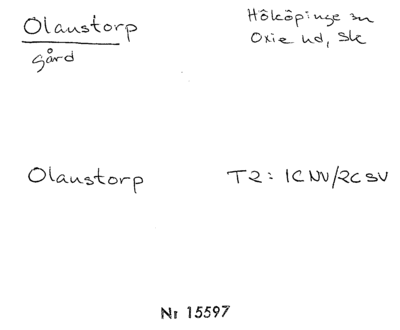 Olaustorp
gård
Hököpinge sn
Oxie hd, Sk
Olaustorp
T2: 1C NV/2C SV
Nr 15597